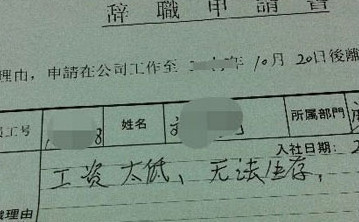 辞職申請書
理由，申請在公司工作至 年10月20日後離
員工号 8 姓名 所属部門
入社日期：2
工资太低、无法生存，
職理由